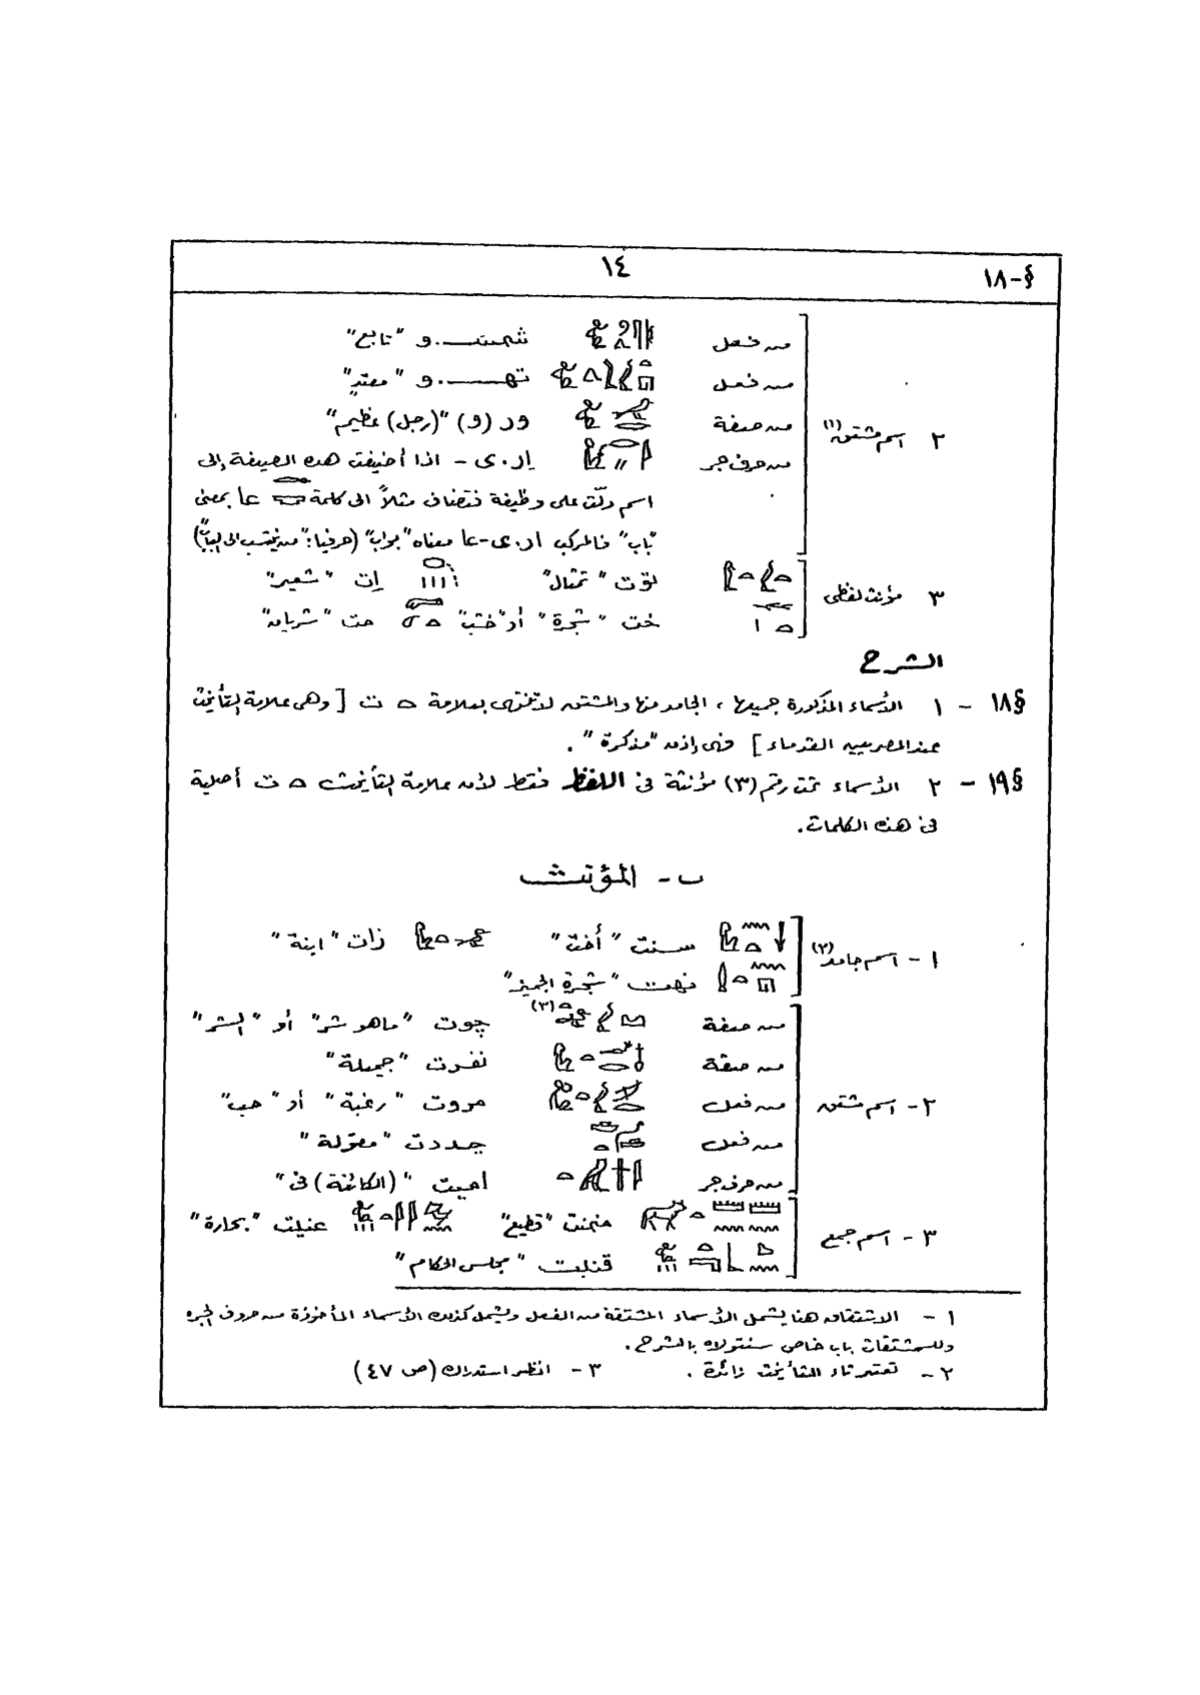 §-١٨ ١٤
من فعل شمس.و "تابع"
من فعل تهـ.و "معتدٍ"
٢ اسم مشتق(١) من صفة ور (و) "(رجل) عظيم"
من حرف جر إر.ى - اذا أضيفت هذه الصيغة إلى
اسم دلّت على وظيفة فتضاف مثلاً الى كلمة عا بمعنى
"باب" فالمركب ار.ى-عا معناه "بواب" (حرفيا: "من ينتسب الى الباب")
٣ مؤنث لفظى توت "تمثال" إت "شعير"
خت "شجرة" أو "خشب" مت "شريان"
الشرح
§١٨ - ١ الأسماء المذكورة جميعها، الجامد منها والمشتق لا تنتهى بعلامة ت [وهى علامة التأنيث
عند المصريين القدماء] فهى إذن "مذكرة".
§١٩ - ٢ الأسماء تحت رقم (٣) مؤنثة فى اللفظ فقط لأن علامة التأنيث ت أصلية
فى هذه الكلمات.
ب - المؤنث
١ - اسم جامد(٢) سنت "أخت" زات "ابنة"
نهت "شجرة الجميز"
من صفة (٣) چوت "ماهو شر" أو "الشر"
من صفة نفرت "جميلة"
٢ - اسم مشتق من فعل مروت "رغبة" أو "حب"
من فعل جددت "مقولة"
من حرف جر اميت "(الكائنة) فى"
٣ - اسم جمع منمنت "قطيع" عنيلت "بحارة"
قنبت "مجلس الحكام"
١ - الاشتقاق هنا يشمل الأسماء المشتقة من الفعل ويشمل كذلك الأسماء المأخوذة من حروف الجر
وللمشتقات باب خاص سنتولاه بالشرح.
٢ - تعتبر تاء التأنيث زائدة. ٣ - انظر استدراك (ص ٤٧)